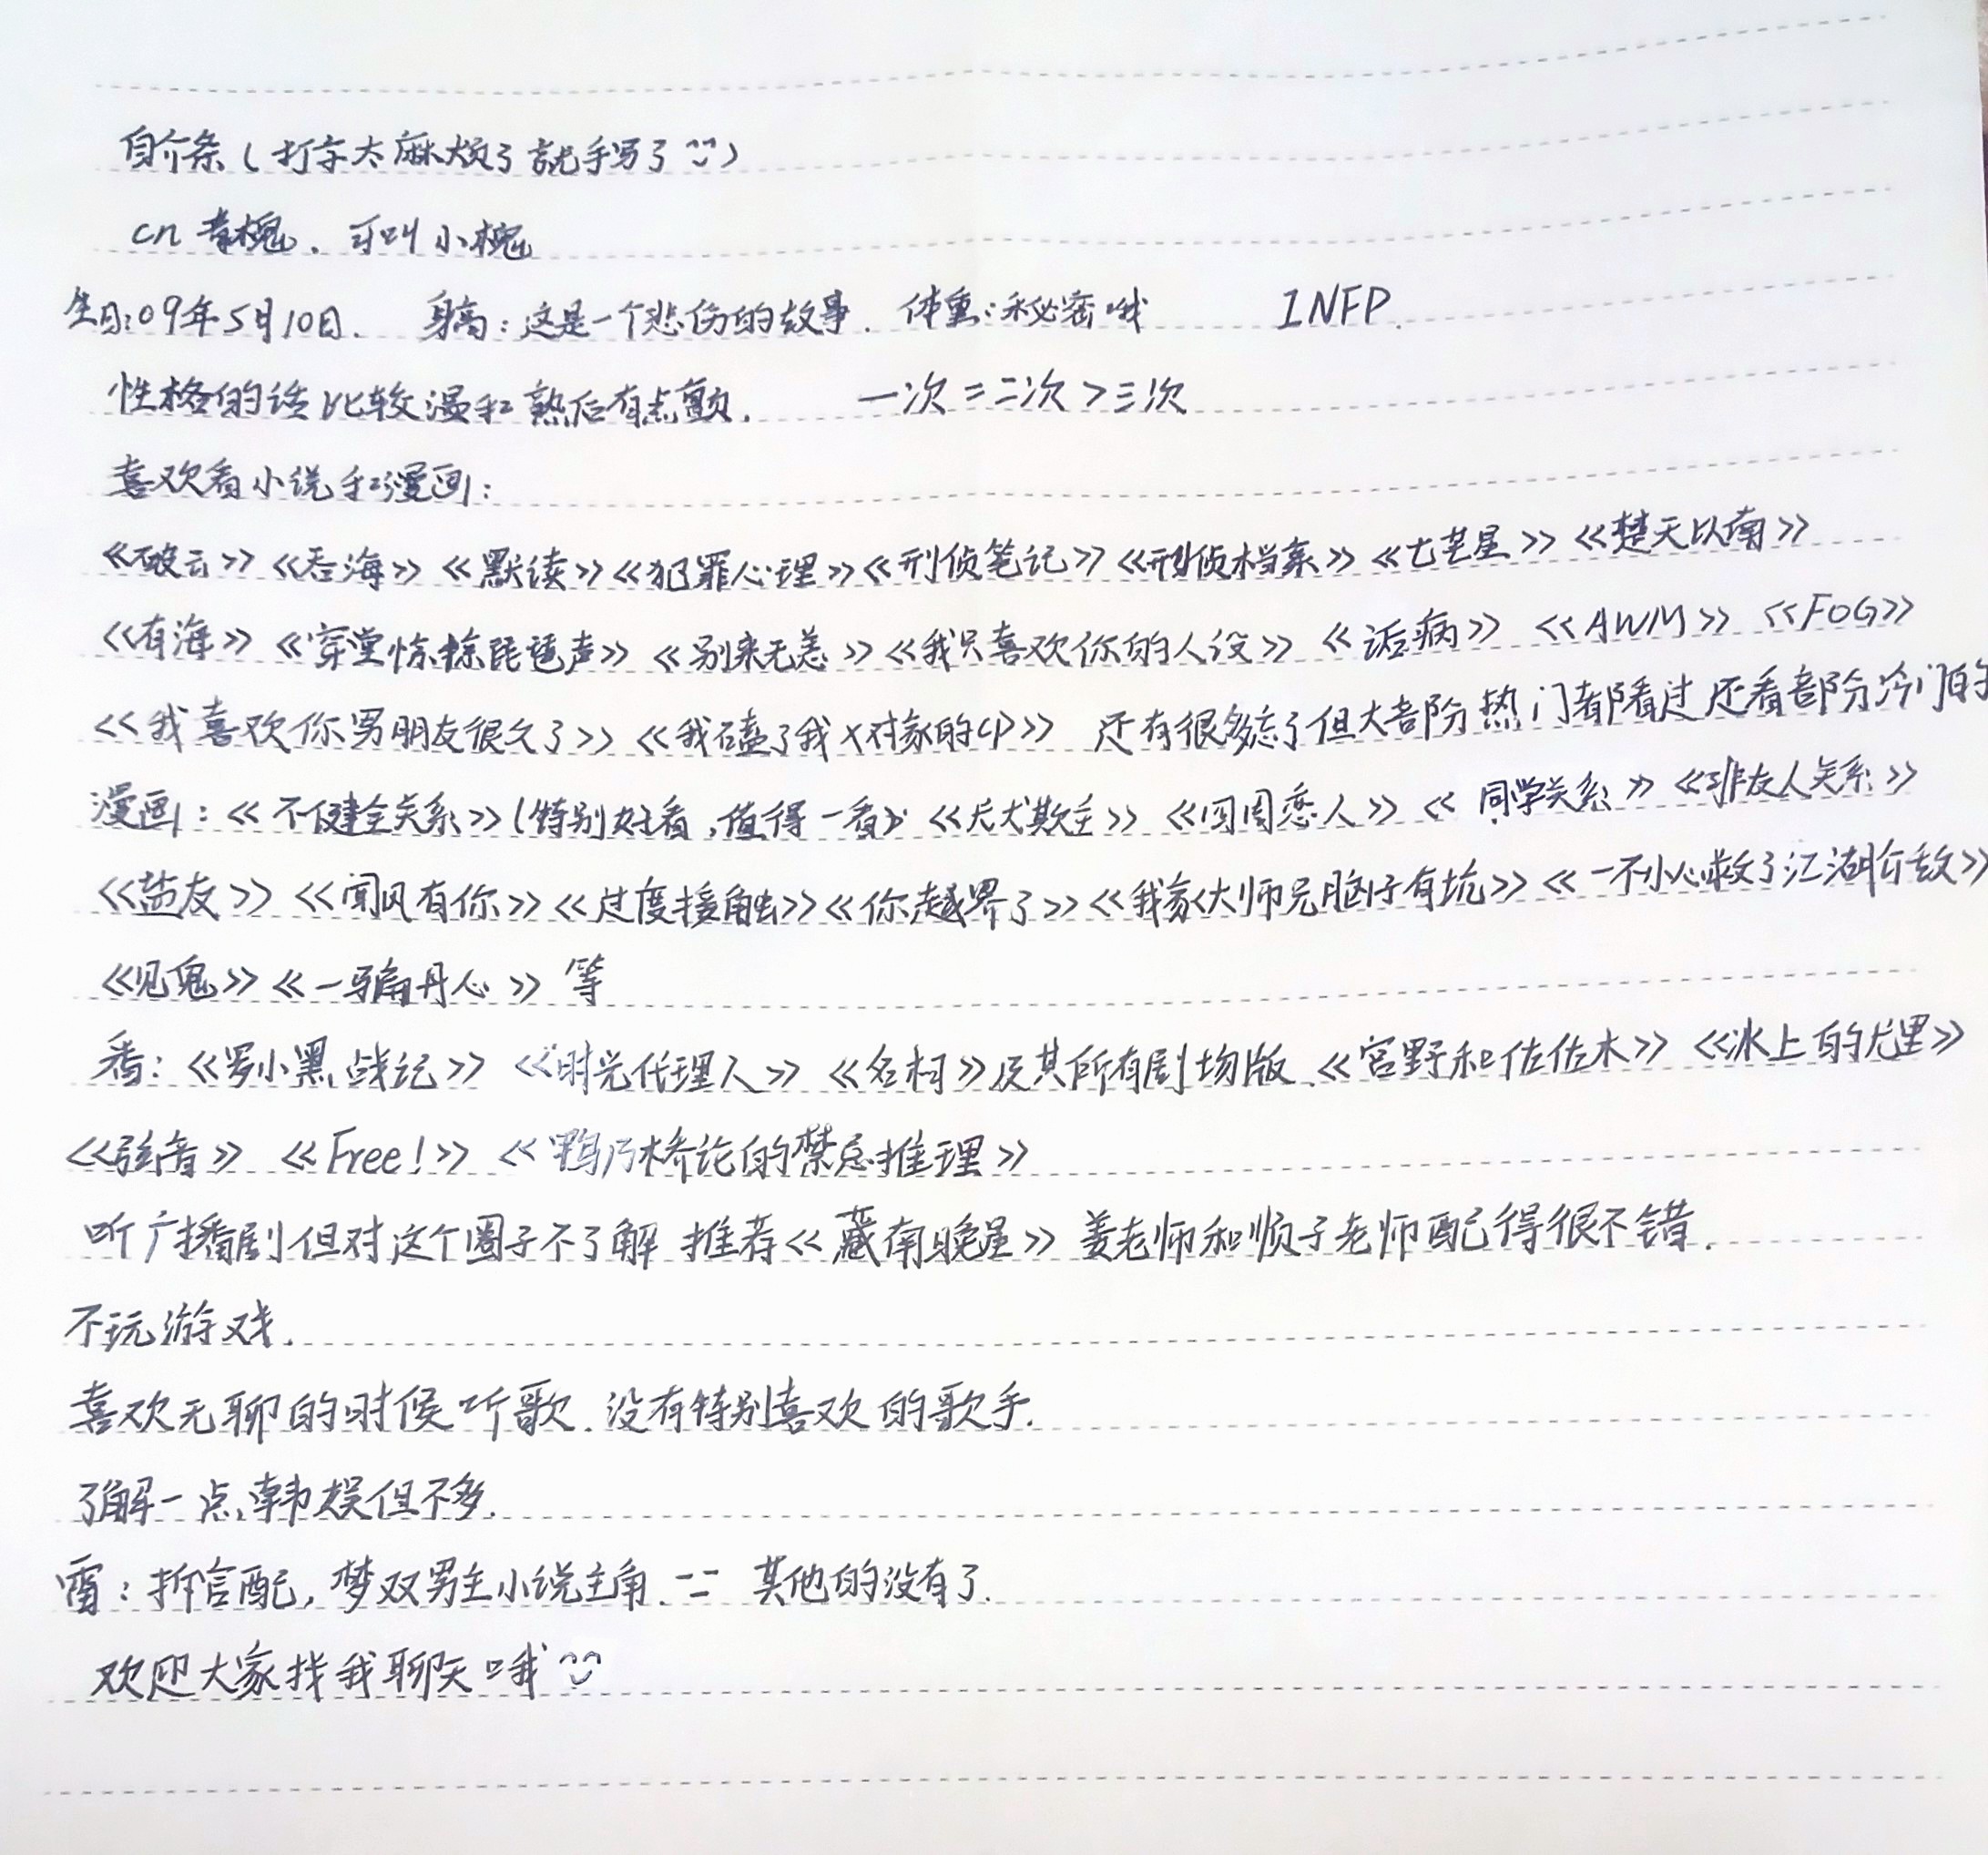 自介条(打字太麻烦了就手写了)
cn 青槐. 可叫小槐
生日:09年5月10日. 身高:这是一个悲伤的故事. 体重:秘密哦 INFP.
性格的话比较温和熟后有点颠. 一次=二次>三次
喜欢看小说和漫画:
《破云》《吞海》《默读》《犯罪心理》《刑侦笔记》《刑侦档案》《七芒星》《楚天以南》
《有海》《穿堂惊掠琵琶声》《别来无恙》《我只喜欢你的人设》《诟病》《AWM》《FOG》
《我喜欢你男朋友很久了》《我磕了我×对家的cp》 还有很多忘了但大部分热门都看过还看部分冷门的
漫画:《不健全关系》(特别好看,值得一看)《犬欺主》《囚恋人》《同学关系》《非友人关系》
《盐友》《闻风有你》《过度接触》《你越界了》《我家大师兄脑子有坑》《一不小心救了江湖公敌》
《见鬼》《一骗丹心》等
番:《罗小黑战记》《时光代理人》《名柯》及其所有剧场版.《宫野和佐佐木》《冰上的尤里》
《弦音》《Free!》《鸭乃桥论的禁忌推理》
听广播剧但对这个圈子不了解 推荐《藏南晚星》姜老师和顺子老师配得很不错.
不玩游戏.
喜欢无聊的时候听歌.没有特别喜欢的歌手.
了解一点韩娱但不多.
雷:拆官配,梦双男主小说主角. 其他的没有了.
欢迎大家找我聊天哦